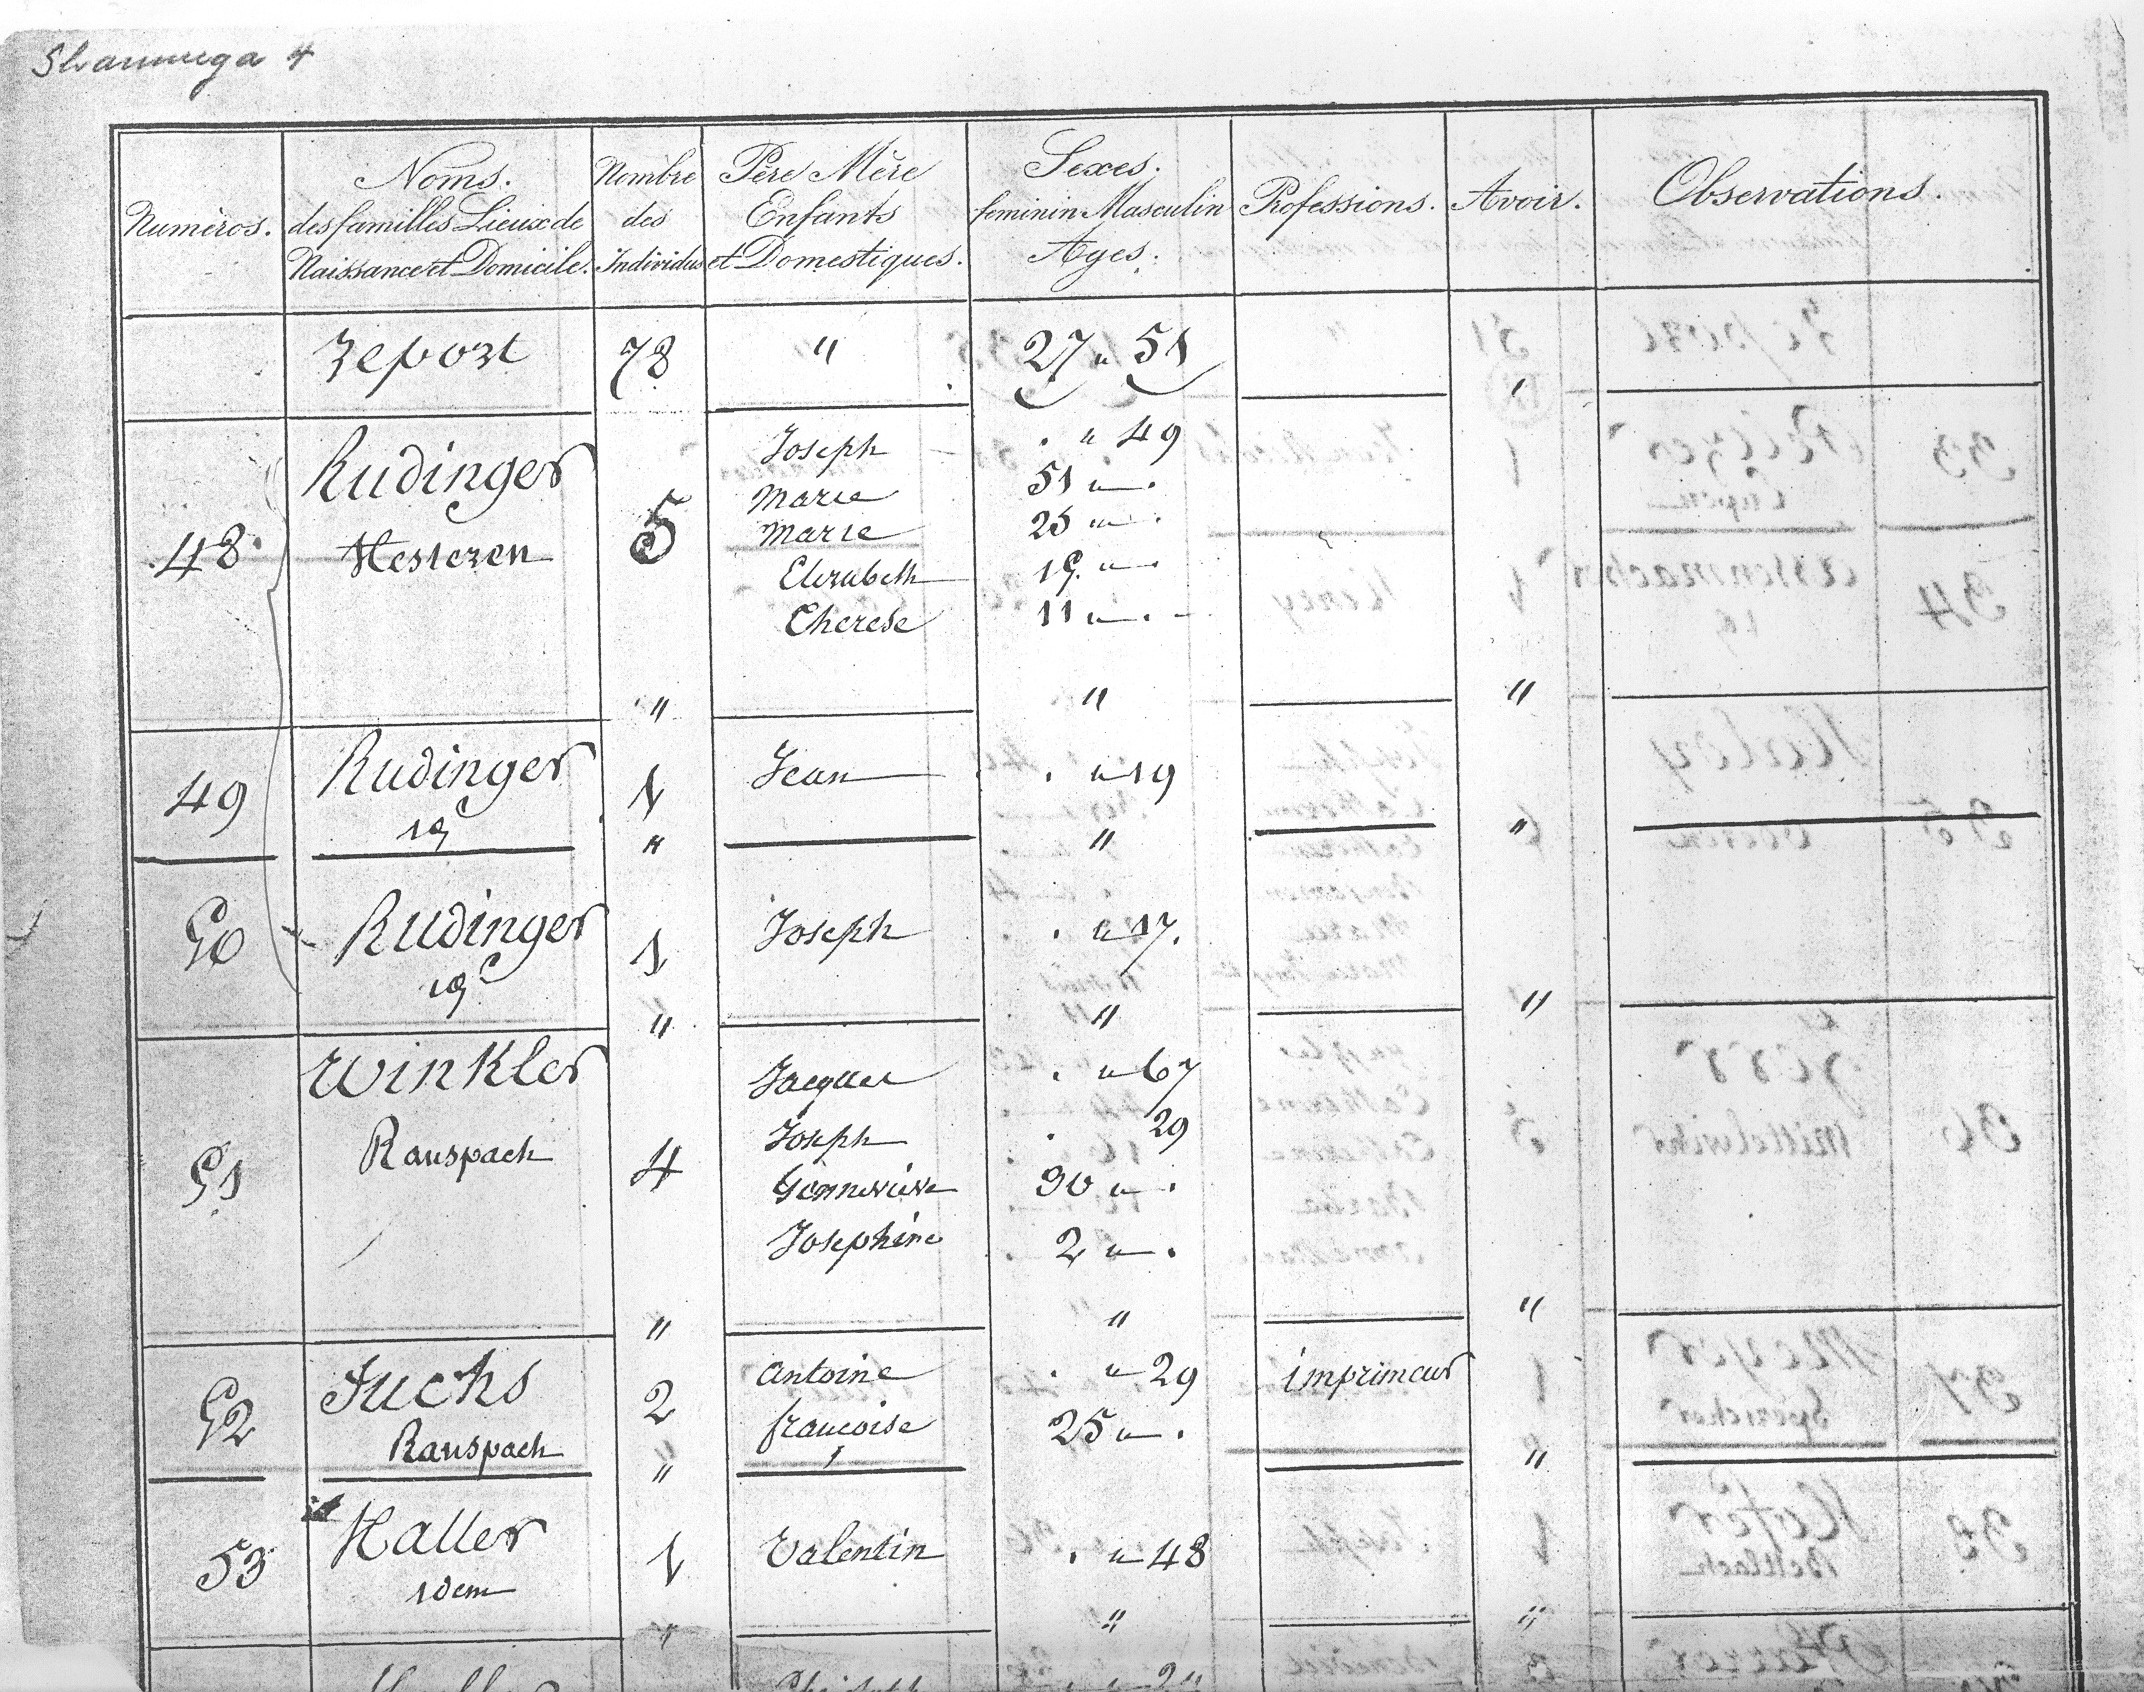 Numèros.
Noms.
des familles Lieux de
Naissance et Domicile.
Nombre
des
Individus
Père Mère
Enfants
et Domestiques.
Sexes.
feminin Masculin
Ages.
Professions.
Avoir.
Observations.
report 78 " 27 " 51
48. Rudinger 5 Joseph . " 49
Marie 51 " .
Hesteren Marie 25 " .
Elizabeth 19. " .
Therese 11 " . -
" " "
49 Rudinger 1 Jean . " 19
id " " "
50 Rudinger 1 Joseph . " 17.
id " " "
51 Winkler 4 Jacques . " 67
Ranspach Joseph . 29
Gènneviève 30 " .
Josephine 2 " .
" " "
52 Fuchs 2 Antoine . " 29 imprimeur
Ranspach francoise 25 " .
" "
53 Haller 1 Valentin . " 48
idem " " "